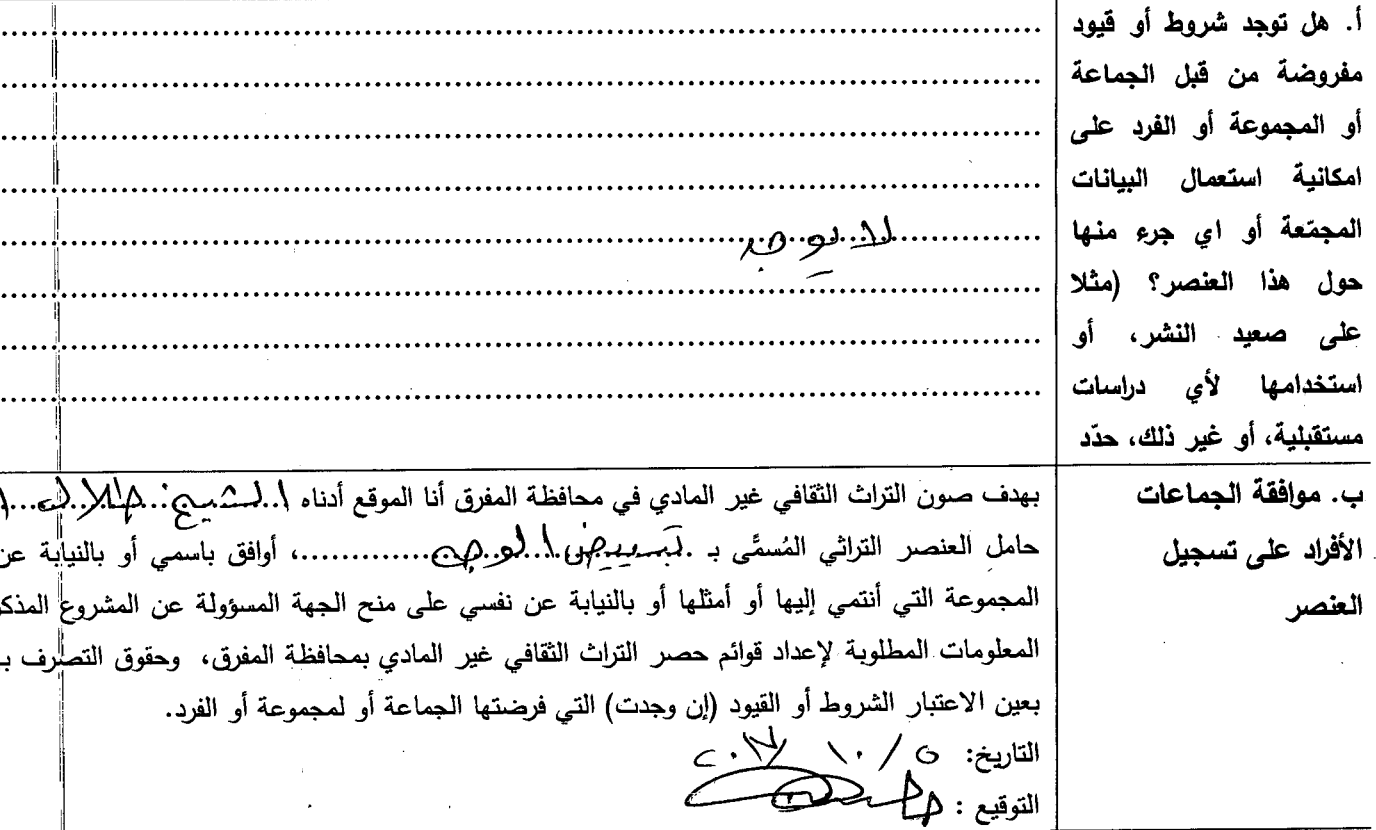 أ. هل توجد شروط أو قيود
مفروضة من قبل الجماعة
أو المجموعة أو الفرد على
امكانية استعمال البيانات
المجمّعة أو اي جرء منها
حول هذا العنصر؟ (مثلا
على صعيد النشر، أو
استخدامها لأي دراسات
مستقبلية، أو غير ذلك، حدّد
لا يوجد
ب. موافقة الجماعات
الأفراد على تسجيل
العنصر
بهدف صون التراث الثقافي غير المادي في محافظة المفرق أنا الموقع أدناه الشيخ: طلال
حامل العنصر التراثي المُسمَّى بـ .تبييض الوجه............، أوافق باسمي أو بالنيابة عن
المجموعة التي أنتمي إليها أو أمثلها أو بالنيابة عن نفسي على منح الجهة المسؤولة عن المشروع المذكو
المعلومات المطلوبة لإعداد قوائم حصر التراث الثقافي غير المادي بمحافظة المفرق، وحقوق التصرف ب
بعين الاعتبار الشروط أو القيود (إن وجدت) التي فرضتها الجماعة أو لمجموعة أو الفرد.
التاريخ: ٥ / ١٠
التوقيع :